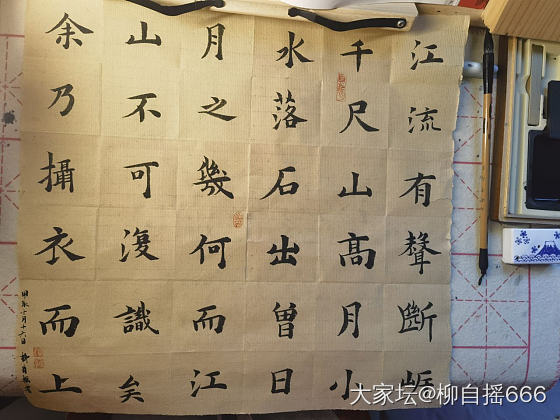 江流有聲斷岸
千尺山髙月小
水落石出曾日
月之幾何而江
山不可復識矣
余乃攝衣而上
甲辰十月十六日
大家坛@柳自摇666